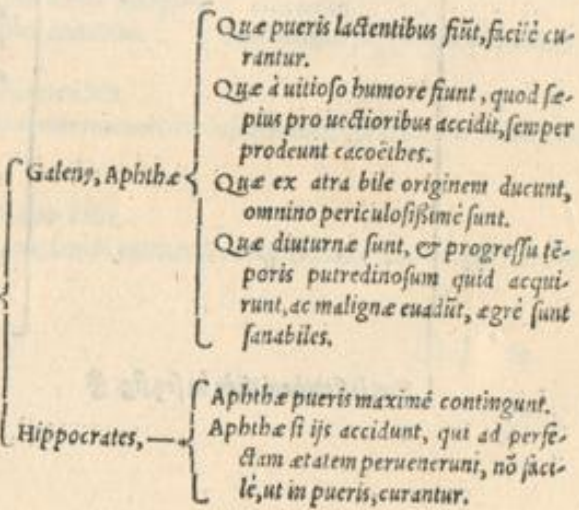 Quæ pueris lactentibus fiũt, facilè cu-
rantur.
Quæ à uitioso humore fiunt, quod sæ-
pius prouectioribus accidit, semper
prodeunt cacoëthes.
Galenꝰ, Aphthæ
Quæ ex atra bile originem ducunt,
omnino periculosißimè sunt.
Quæ diuturnæ sunt, & progressu tẽ-
poris putredinosum quid acqui-
runt, ac malignæ euadũt, ægrè sunt
sanabiles.
Aphthæ pueris maximè contingunt.
Hippocrates, —
Aphthæ si ijs accidunt, qui ad perfe-
ctam ætatem peruenerunt, nõ faci-
lè, ut in pueris, curantur.